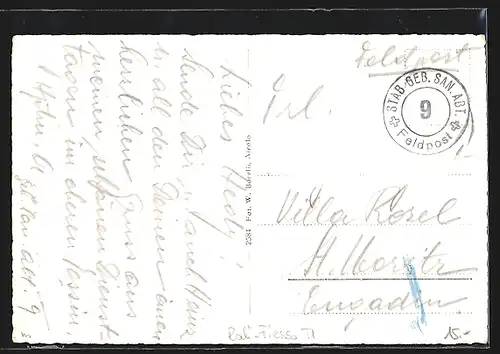 Feldpost
STAB. GEB. SAN. ABT.
9
Feldpost
Frl.
Villa Rosel
St. Moritz
Engadin
15.-
2584 Fot. W. Borelli, Airolo
Liebes Hedy!
sende Dir, auch Heinz
u. all den Deinen einen
herrlichen Gruss aus
meinen, schönen Dienst-
tagen im oberen Tessin,